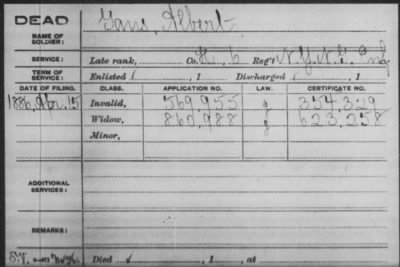 DEAD
NAME OF SOLDIER: Gans, Albert
SERVICE: Late rank, Co. H, 6 Reg't N.Y.N.G. Inf
TERM OF SERVICE: Enlisted , 1 Discharged , 1
DATE OF FILING. CLASS. APPLICATION NO. LAW. CERTIFICATE NO.
1886, Apr. 15 Invalid, 569,955 g 354,329
Widow, 860,988 g 623,258
Minor,
ADDITIONAL SERVICES:
REMARKS:
Died , 1 , at